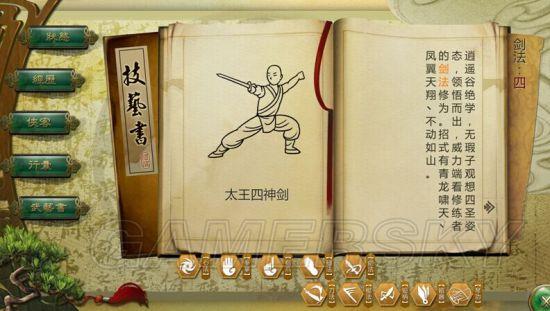 狀態
經歷
俠客
行囊
武藝書
技藝書
太王四神剑
剑法·四
逍遥谷绝学，无瑕子观想四圣姿
态，领悟而出，威力端看修练者
的剑法修为。招式有青龙啸天、
凤翼天翔、不动如山。
GAMERSKY